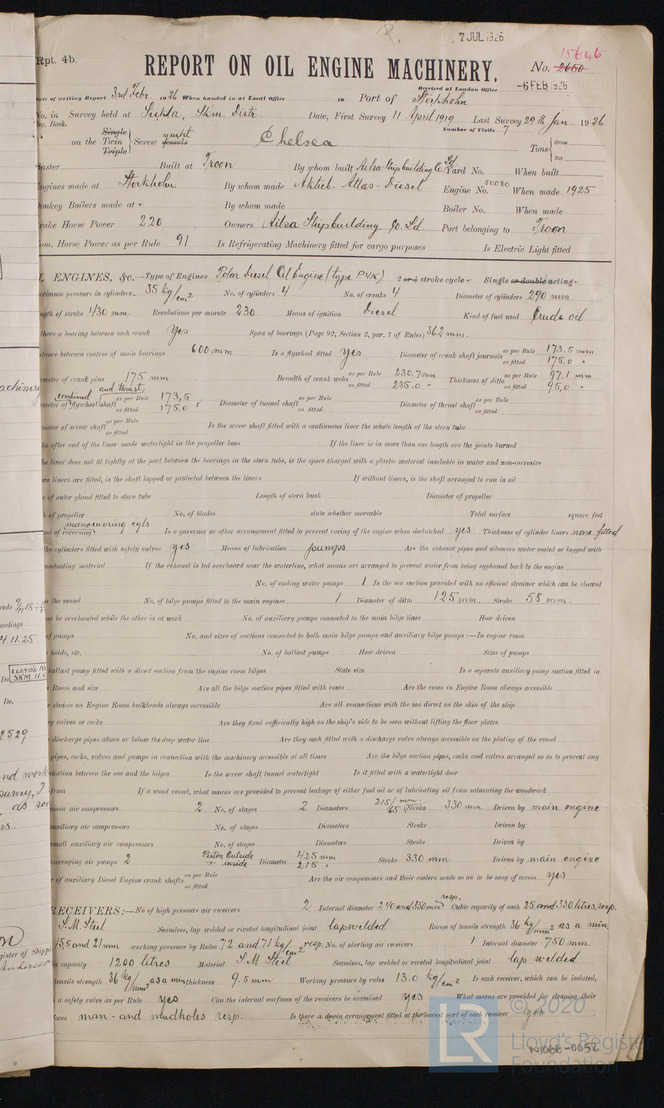 7 JUL 1926
Rpt. 4b.
15646
REPORT ON OIL ENGINE MACHINERY.
No. 2660
Received at London Office
-6 FEB 1926
ate of writing Report 3rd Febr. 1926 When handed in at Local Office 19 Port of Stockholm
No. in Survey held at Sickla, Skm. Distr. Date, First Survey 11 April 1919 Last Survey 29th Jan. 1926
Book. Number of Visits 7
on the Single Twin Triple Screw vessels yacht Chelsea Tons Gross Net
Master Built at Troon By whom built Ailsa Shipbuilding Co. Ld Yard No. When built
ngines made at Stockholm By whom made Aktieb. Atlas-Diesel Engine No. 80080 When made 1925
onkey Boilers made at By whom made Boiler No. When made
rake Horse Power 220 Owners Ailsa Shipbuilding Co. Ld Port belonging to Troon
om. Horse Power as per Rule 91 Is Refrigerating Machinery fitted for cargo purposes Is Electric Light fitted
L ENGINES, &c.—Type of Engines Polar Diesel Oil Engine (type PVK) 2 or 4 stroke cycle Single or double acting
aximum pressure in cylinders 35 kg/cm2 No. of cylinders 4 No. of cranks 4 Diameter of cylinders 290 mm
ngth of stroke 430 mm Revolutions per minute 230 Means of ignition Diesel Kind of fuel used Crude oil
there a bearing between each crank Yes Span of bearings (Page 92, Section 2, par. 7 of Rules) 362 mm
istance between centres of main bearings 600 mm Is a flywheel fitted yes Diameter of crank shaft journals as per Rule 173.5 mm as fitted 175.0 "
meter of crank pins 175 mm Breadth of crank webs as per Rule 230.7 mm as fitted 235.0 " Thickness of ditto as per Rule 97.1 mm as fitted 95.0 "
combined and thrust
meter of flywheel shaft as per Rule 173.5 as fitted 175.0 Diameter of tunnel shaft as per Rule as fitted Diameter of thrust shaft as per Rule as fitted
meter of screw shaft as per Rule as fitted Is the screw shaft fitted with a continuous liner the whole length of the stern tube
he after end of the liner made watertight in the propeller boss If the liner is in more than one length are the joints burned
he liner does not fit tightly at the part between the bearings in the stern tube, is the space charged with a plastic material insoluble in water and non-corrosive
wo liners are fitted, is the shaft lapped or protected between the liners If without liners, is the shaft arranged to run in oil
of outer gland fitted to stern tube Length of stern bush Diameter of propeller
h of propeller No. of blades state whether moveable Total surface square feet
od of reversing manoeuvring cyls Is a governor or other arrangement fitted to prevent racing of the engine when declutched yes Thickness of cylinder liners none fitted
the cylinders fitted with safety valves yes Means of lubrication pumps Are the exhaust pipes and silencers water cooled or lagged with
onducting material If the exhaust is led overboard near the waterline, what means are arranged to prevent water from being syphoned back to the engine
No. of cooling water pumps 1 Is the sea suction provided with an efficient strainer which can be cleared
n the vessel No. of bilge pumps fitted to the main engines 1 Diameter of ditto 125 mm. Stroke 58 mm.
be overhauled while the other is at work No. of auxiliary pumps connected to the main bilge lines How driven
of pumps No. and sizes of suctions connected to both main bilge pumps and auxiliary bilge pumps:—In engine room
holds, etc. No. of ballast pumps How driven Sizes of pumps
ballast pump fitted with a direct suction from the engine room bilges State size Is a separate auxiliary pump suction fitted in
Room and size Are all the bilge suction pipes fitted with roses Are the roses in Engine Room always accessible
sluices on Engine Room bulkheads always accessible Are all connections with the sea direct on the skin of the ship
y valves or cocks Are they fixed sufficiently high on the ship's side to be seen without lifting the floor plates
discharge pipes above or below the deep water line Are they each fitted with a discharge valve always accessible on the plating of the vessel
pipes, cocks, valves and pumps in connection with the machinery accessible at all times Are the bilge suction pipes, cocks and valves arranged so as to prevent any
nication between the sea and the bilges Is the screw shaft tunnel watertight Is it fitted with a watertight door
from If a wood vessel, what means are provided to prevent leakage of either fuel oil or of lubricating oil from saturating the woodwork
main air compressors 2 No. of stages 2 Diameters 215/65 mm. Stroke 330 mm Driven by main engine
auxiliary air compressors No. of stages Diameters Stroke Driven by
small auxiliary air compressors No. of stages Diameters Stroke Driven by
cavenging air pumps 2 Piston Outside " inside Diameter 425 mm 215 " Stroke 330 mm Driven by main engine
r of auxiliary Diesel Engine crank shafts as per Rule as fitted Are the air compressors and their coolers made so as to be easy of access yes
RECEIVERS:—No of high pressure air receivers 2 Internal diameter 240 and 350 mm resp. Cubic capacity of each 25 and 330 litres, resp.
S.M. Steel Seamless, lap welded or riveted longitudinal joint lapwelded Range of tensile strength 36 kg/mm2 as a min.
15,5 and 21 mm working pressure by Rules 72 and 71 kg/cm2 resp. No. of starting air receivers 1 Internal diameter 750 mm.
ic capacity 1200 litres Material S.M. Steel Seamless, lap welded or riveted longitudinal joint lap welded
tensile strength 36 kg/mm2 as a min thickness 9.5 mm Working pressure by rules 13.0 kg/cm2 Is each receiver, which can be isolated,
a safety valve as per Rule yes Can the internal surfaces of the receivers be examined yes What means are provided for cleaning their
faces man- and mudholes resp. Is there a drain arrangement fitted at the lowest part of each receiver yes
achinery
4.11.25
LLOYD'S
SKM.
Do.
Do.
8529
nd work
survey, I
as
LR
© 2020
Lloyd's Register
Foundation
W1066-0052